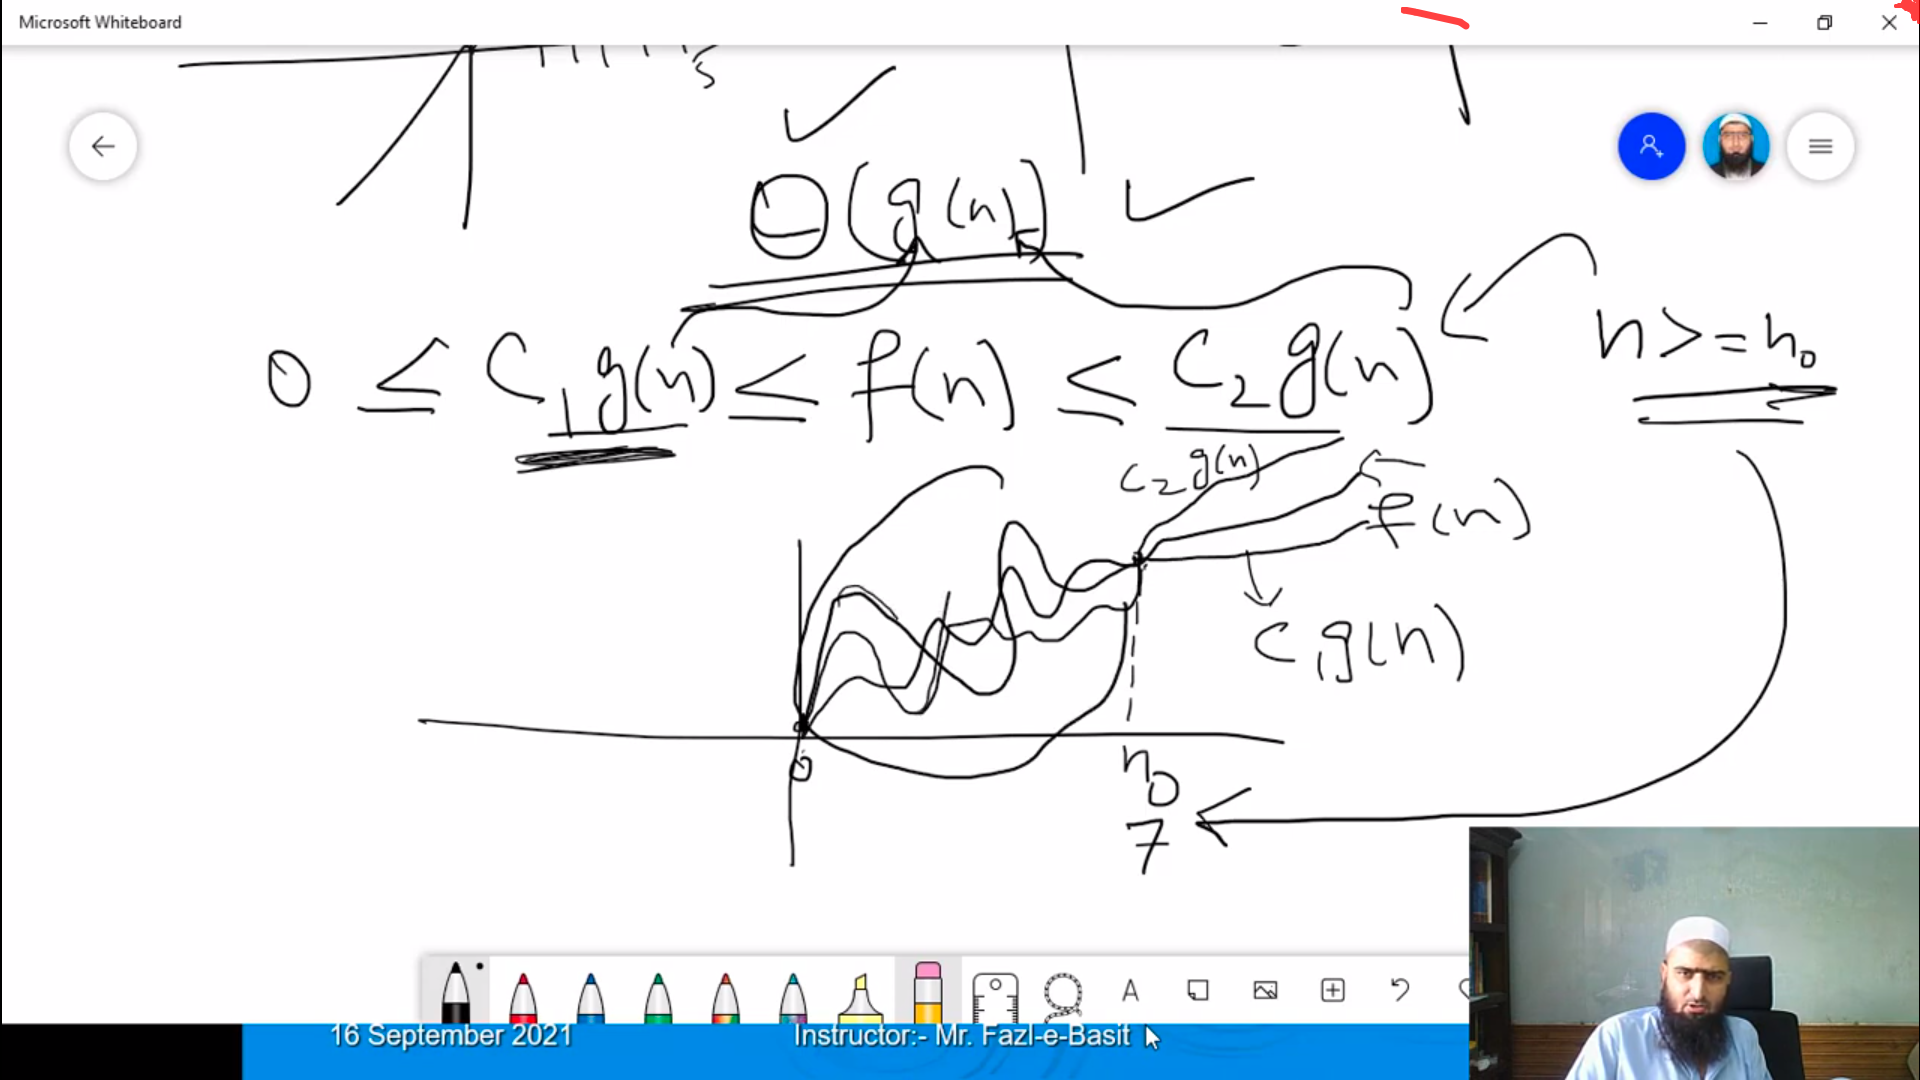 Microsoft Whiteboard
5
Θ(g(n))
0 ≤ C1g(n) ≤ f(n) ≤ C2g(n) n>=n0
C2g(n)
f(n)
C1g(n)
0
n0
7
A
16 September 2021 Instructor:- Mr. Fazl-e-Basit